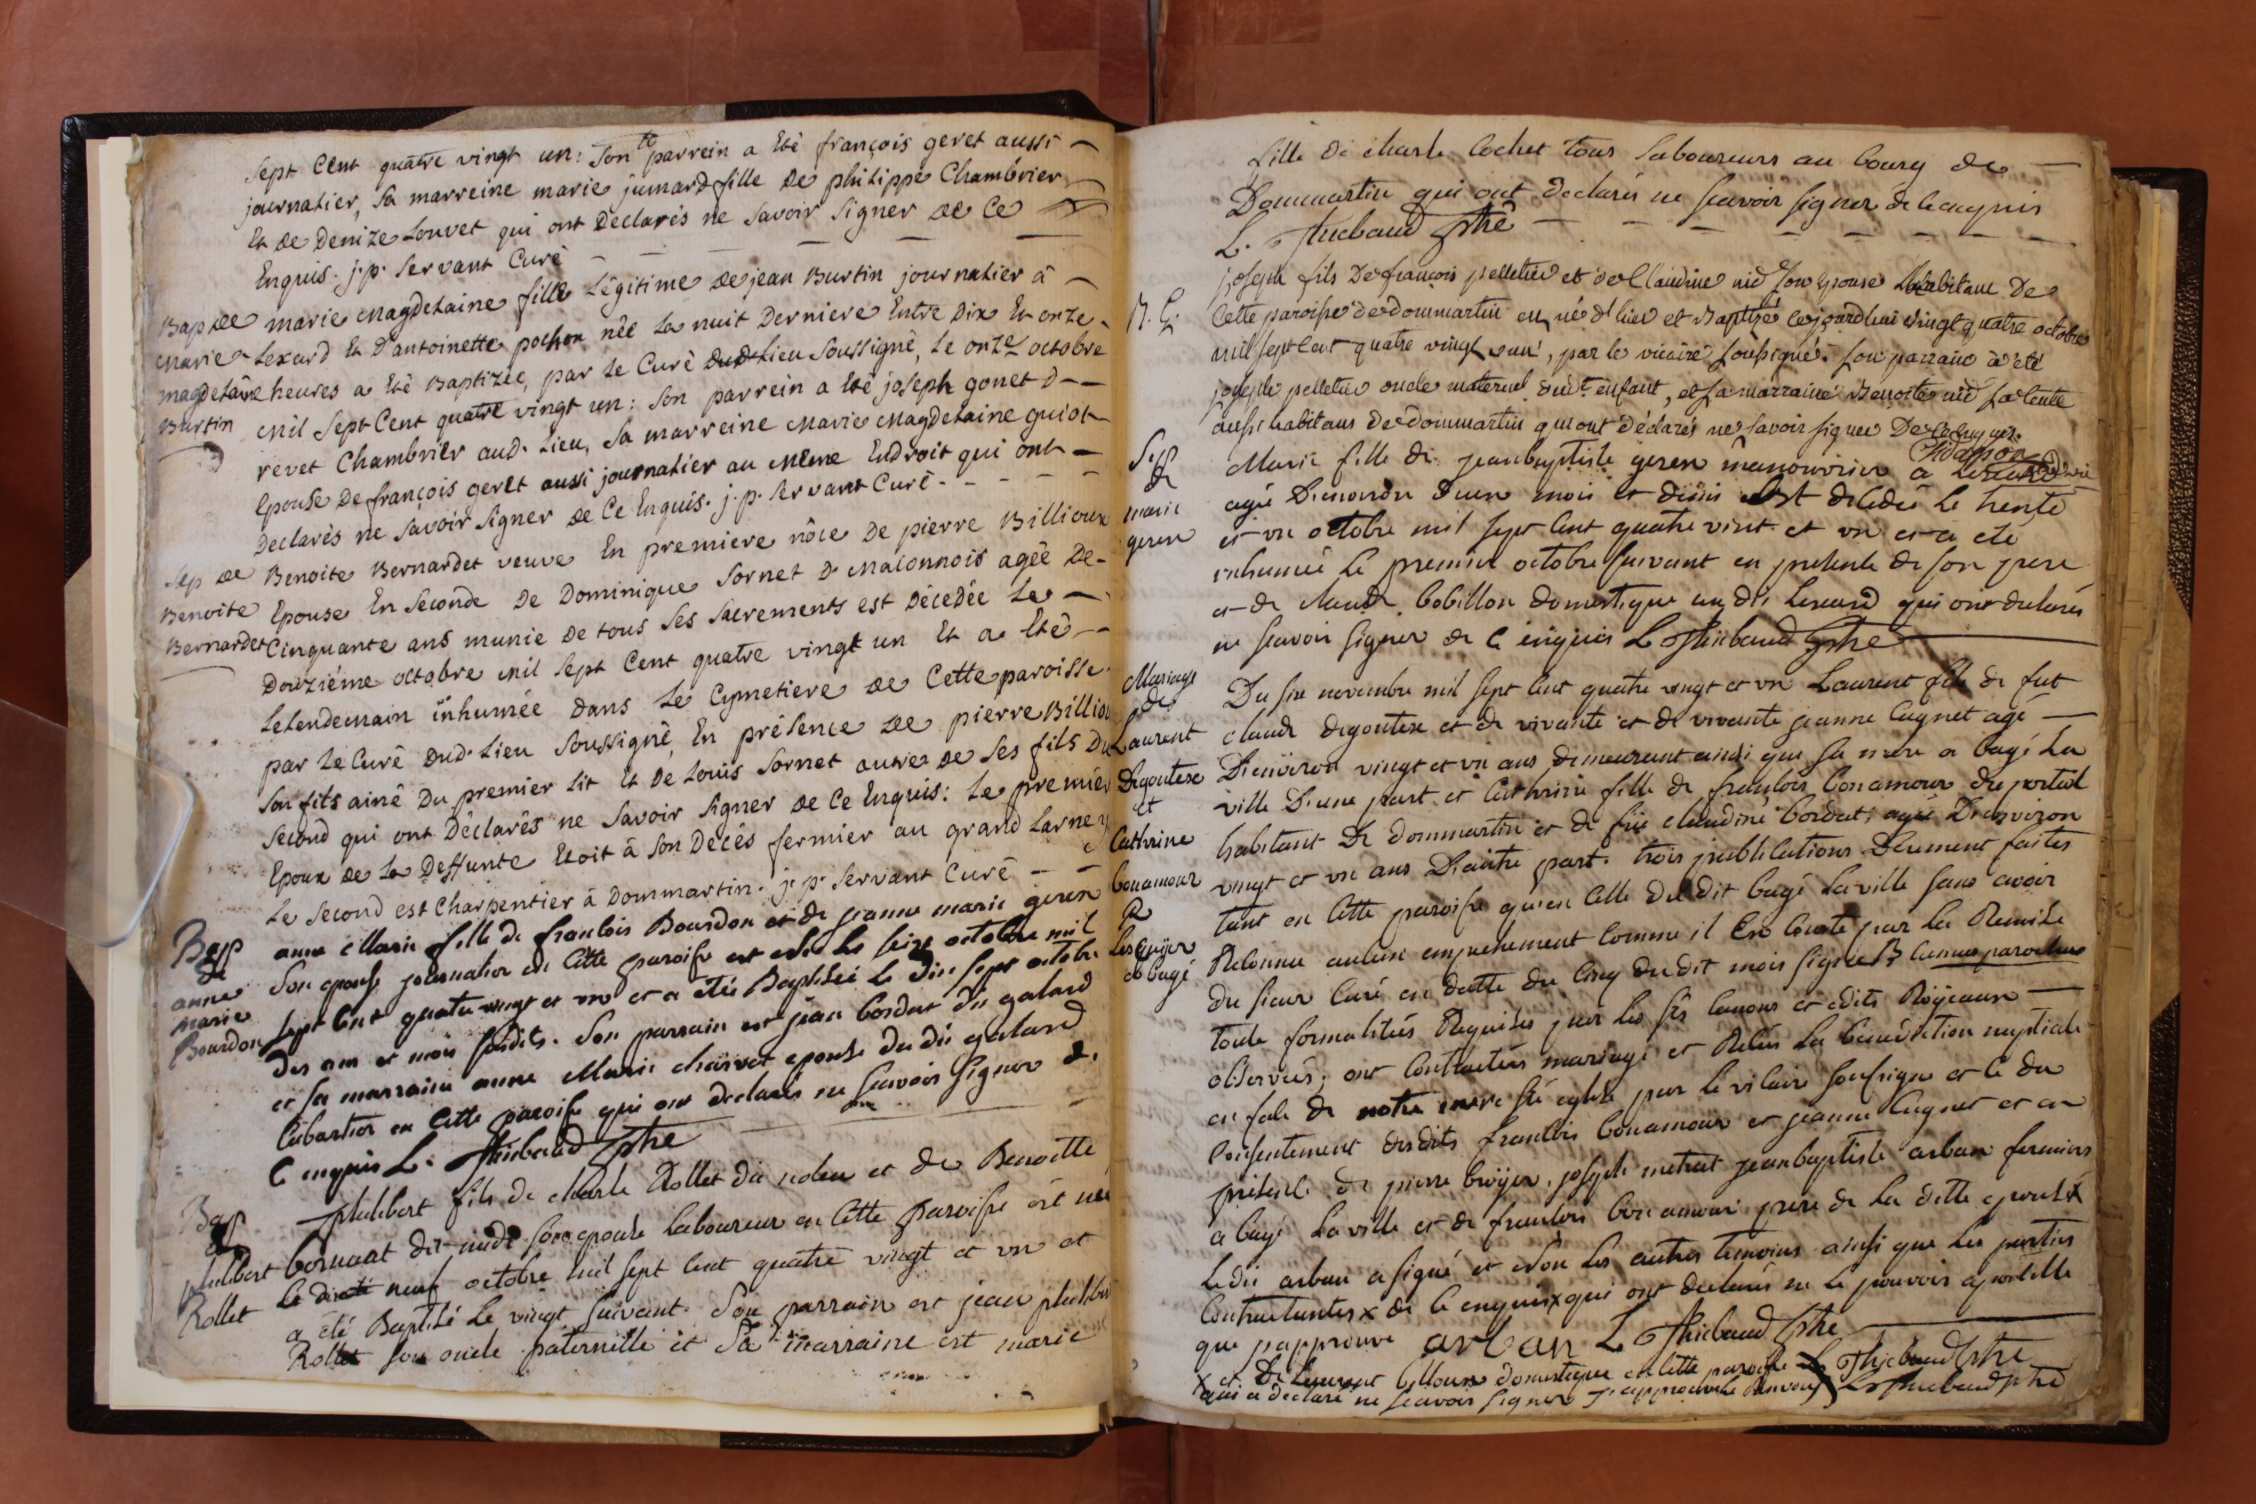 sept Cent quatre vingt un: Son parrein a Eté françois geret aussi
journalier, Sa marreine marie jumard fille De philippe Chambrier
Et De Denize Louvet qui ont Déclarés ne Savoir Signer De Ce
Enquis. j. p. Servant Curé
Bap De marie Magdelaine fille Légitime De jean Burtin journalier à
Marie Lexard Et D'antoinette pochon née La nuit Derniere Entre Dix Et onze
magdelaine heures a Eté Baptizée, par Le Curé dud. Lieu Soussigné, Le onze octobre
Burtin Mil Sept Cent quatre vingt un: Son parrein a Eté joseph gonet D
revet Chambrier aud. Lieu, Sa marreine Marie Magdelaine guiot
Epouse De françois geret aussi journalier au Même Endroit qui ont
Declarés ne Savoir Signer De Ce Enquis. j. p. Servant Curé
Sep De Benoite Bernardet veuve En premiere nôce De pierre Billioux
Benoite Epouse En Seconde De Dominique Sornet D Malonnois agée De
Bernardet Cinquante ans munie De tous Ses Sacrements est Décedée Le
Douziéme octobre Mil Sept Cent quatre vingt un Et a Eté
Le Lendemain inhumée Dans Le Cymetiere De Cette paroisse
par Le Curé Dud. Lieu Soussigné, En présence De pierre Billiou
Son fils ainé Du premier Lit Et De Louis Sornet autre De Ses fils Du
Second qui ont Déclarés ne Savoir Signer De Ce Enquis: Le premier
Epoux De La Deffunte Etoit à Son Décés fermier au grand Larney
Le Second est Charpentier à Dommartin. j. p. Servant Curé
Bap anne Marie fille de francois Bourdon et de jeanne marie geren
de Son epouse journalier en Cette paroisse est née le seize octobre mil
anne sept cent quatre vingt et un et a été Baptisée Le dix sept octobre
marie des an et mois susdits. Son parrain est jean bordat dit galard
Bourdon et sa marraine anne Marie charvet epouse du dit galard
Cabartier en Cette paroisse qui ont declarés ne scavoir signer de
C enquis L. Thiebaud ptre
Bap philibert fils de charle Rollet dit noleu et de Benoitte
de
philibert bornuat dit nide son epouse Laboureur en Cette paroisse est né
Rollet Le dixneuf octobre mil sept cent quatre vingt et un et
a été Baptisé Le vingt suivant. Son parrain est jean philibert
Rollet son oncle paternelle et Sa marraine est marie
fille de charle cochet tous laboureurs au bourg de
Dommartin qui ont declarés ne scavoir signer de ce enquis
L. Thiebaud ptre
joseph fils De françois pelletier et de Claudine nid Son epouse habitant De
B. G. Cette paroisse de dommartin est né d'hier et Baptisé cejourd'hui vingt quatre octobre
mil sept cent quatre vingt un, par le vicaire soussigné. Son parrain a été
joseph pelletier oncle maternel dudt enfant, et sa marraine Benoite nid sa tante
aussi habitans de dommartin qui ont déclarés ne savoir signer De ce enquis.
Sep Marie fille de jean baptiste geren manouvrier a Lexard
de agée D'environ d'un mois et demi Est decedée Le trente
marie et un octobre mil sept cent quatre vint et un et a été
geren inhumée Le premier octobre suivant en presence de son pere
et de claude bobillon domestique au dit Lexard qui ont declarés
ne scavoir signer de C enquis L Thiebaud ptre
Mariage Du six novembre mil sept cent quatre vingt et un Laurent fils de fut
de claude degoutese et de vivante et de vivante jeanne Cugnet agé
Laurent D'environ vingt et un ans demeurant ainsi que sa mere a bagé La
Degoutese ville D'une part et Cathrine fille de francois bonamour du portail
et habitant de dommartin et de fue claudine bordat agée D'environ
Cathrine vingt et un ans D'autre part. trois publications Deument faites
bonamour tant en Cette paroisse qu'en Celle du dit bagé La ville sans avoir
Reconnu aucun empechement comme il En Conste par La Remise
du sieur Curé en datte du cinq du dit mois signé
toute formalités Requises par les sts canons et edits Royeaux
observées, ont contractés mariage et Recus La benediction nuptiale
en face de notre mere ste eglise par le vicaire soussigné et C du
consentement desdits francois bonamour et jeanne Cugnet et en
presence de pierre broyer, joseph metrat jean baptiste arban fermiers
a bagé La ville et de francois bonamour pere de La ditte epouse x
Ledit arban a signé et non Les autres temoins ainsi que Les parties
Contractantes x de C enquis x qui ont declarés ne Le pouvoir
que j'approuve arban L Thiebaud ptre
x et de Laurent domestique en cette paroisse L Thiebaud ptre
qui a declaré ne scavoir signer j'approuve Le Renvoy L Thiebaud ptre